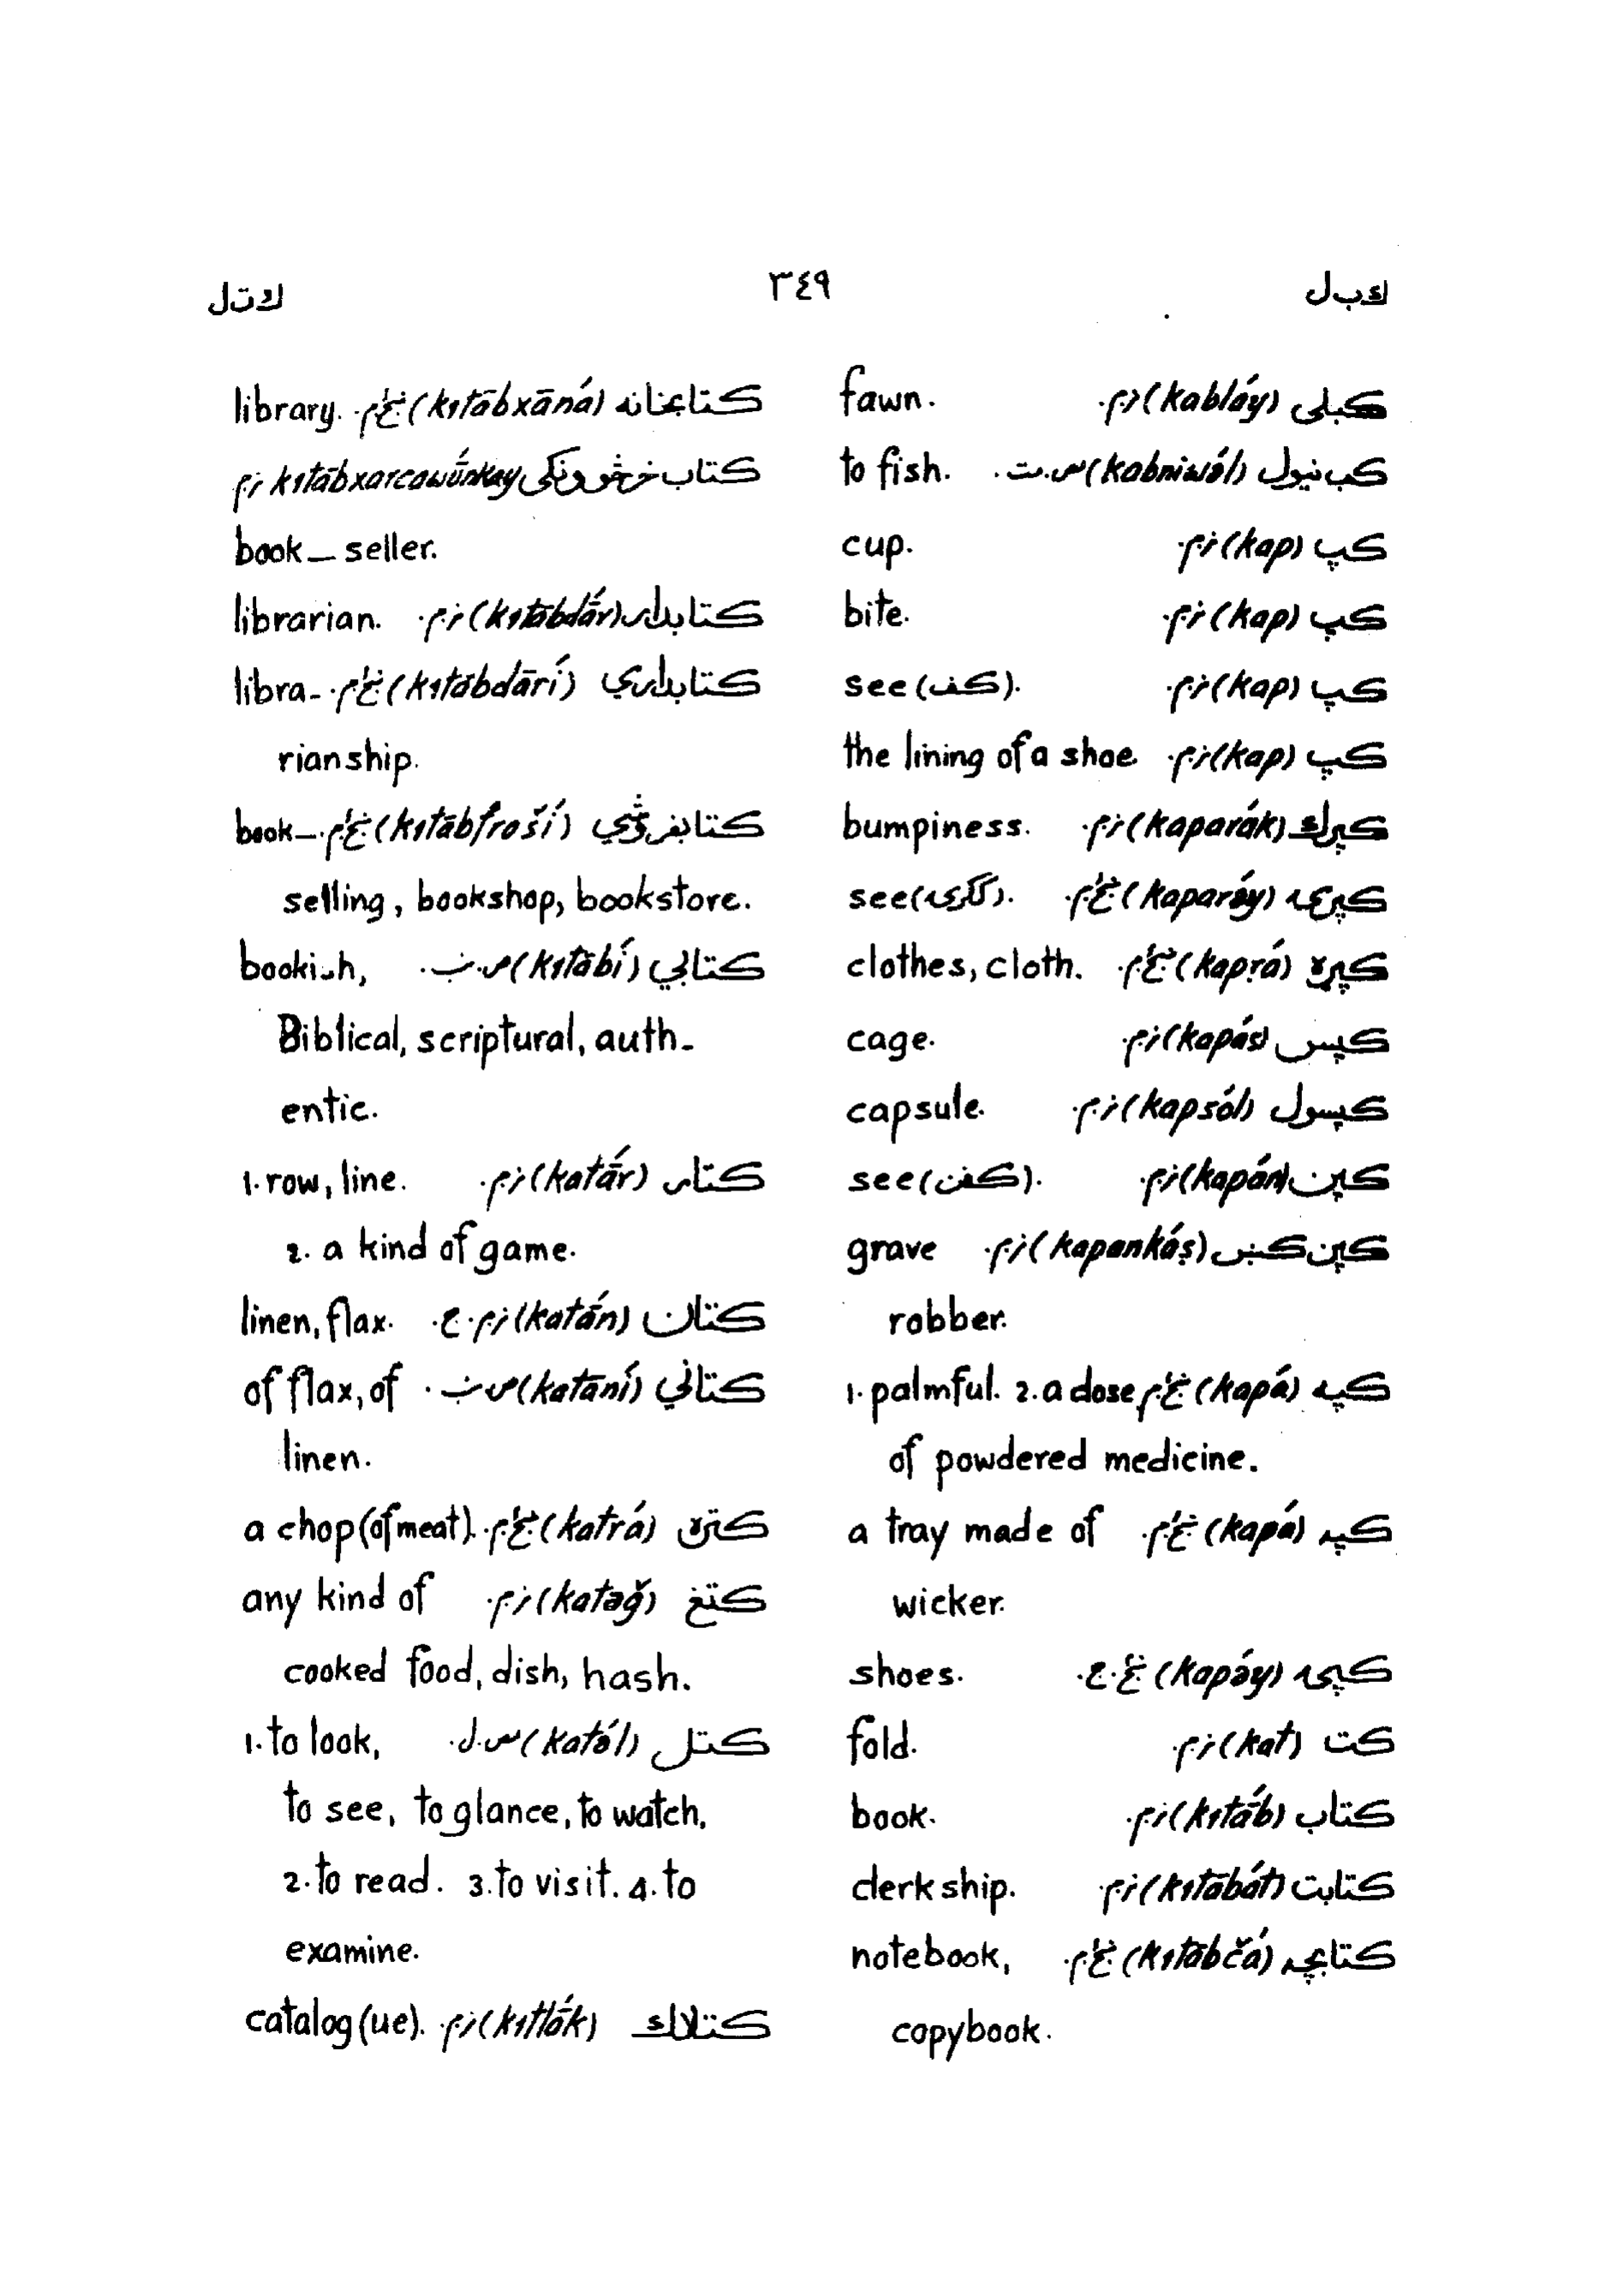 کبل
٣٤٩
کتل
کبلی (kabláy) ن.م. fawn.
کب نیول (kabniwə́l) س.ت. to fish.
کپ (kap) ن.م. cup.
کپ (kap) ن.م. bite.
کپ (kap) ن.م. see (کف).
کپ (kap) ن.م. the lining of a shoe.
کپرک (kaparák) ن.م. bumpiness.
کپرۍ (kaparə́y) ښځ.م. see (ککرۍ).
کپړه (kapṛá) ښځ.م. clothes, cloth.
کپس (kapás) ن.م. cage.
کپسول (kapsól) ن.م. capsule.
کپن (kapán) ن.م. see (کفن).
کپن کښ (kapankáṣ) ن.م. grave
robber.
کپه (kapá) ښځ.م. 1. palmful. 2. a dose
of powdered medicine.
کپه (kapá) ښځ.م. a tray made of
wicker.
کپۍ (kapə́y) ښځ.ج. shoes.
کت (kat) ن.م. fold.
کتاب (kıtā́b) ن.م. book.
کتابت (kıtābát) ن.م. clerkship.
کتابچه (kıtābčá) ښځ.م. notebook,
copybook.
کتابخانه (kıtābxāná) ښځ.م. library.
کتاب خرڅوونکی kıtābxarcawū́nkay ن.م
book_seller.
کتابدار (kıtābdā́r) ن.م. librarian.
کتابداري (kıtābdārí) ښځ.م. libra-
rianship.
کتابفروشي (kıtābfroší) ښځ.م. book-
selling, bookshop, bookstore.
کتابي (kıtābí) ص.ن. bookish,
Biblical, scriptural, auth-
entic.
کتار (katā́r) ن.م. 1. row, line.
2. a kind of game.
کتان (katā́n) ن.م.ج. linen, flax.
کتاني (katāní) ص.ن. of flax, of
linen.
کتره (katrá) ښځ.م. a chop (of meat).
کتغ (katəğ) ن.م. any kind of
cooked food, dish, hash.
کتل (katə́l) س.ل. 1. to look,
to see, to glance, to watch.
2. to read. 3. to visit. 4. to
examine.
کتلاک (kıtlā́k) ن.م. catalog(ue).